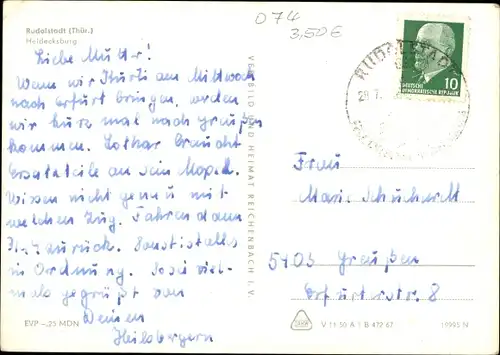 Rudolstadt (Thür.)
Heidecksburg
074
3,50€
Liebe Mutter!
Wenn wir am Mittwoch
nach Erfurt bringen, werden
wir kurz mal nach Greußen
kommen. Lothar braucht
Ersatzteile an sein Moped.
Wissen nicht genau mit
welchen Zug. Fahren dann
zurück. Sonst ist alles
in Ordnung. Seid viel-
mals gegrüßt von
Deinen
Heilsbergern
VERBILD UND HEIMAT REICHENBACH I. V.
RUDOLSTADT
10
DEUTSCHE
DEMOKRATISCHE REPUBLIK
Frau
Marie Schuchardt
5403 Greußen
Erfurterstr. 8
EVP -,25 MDN
V 11 50 A 1 B 472 67